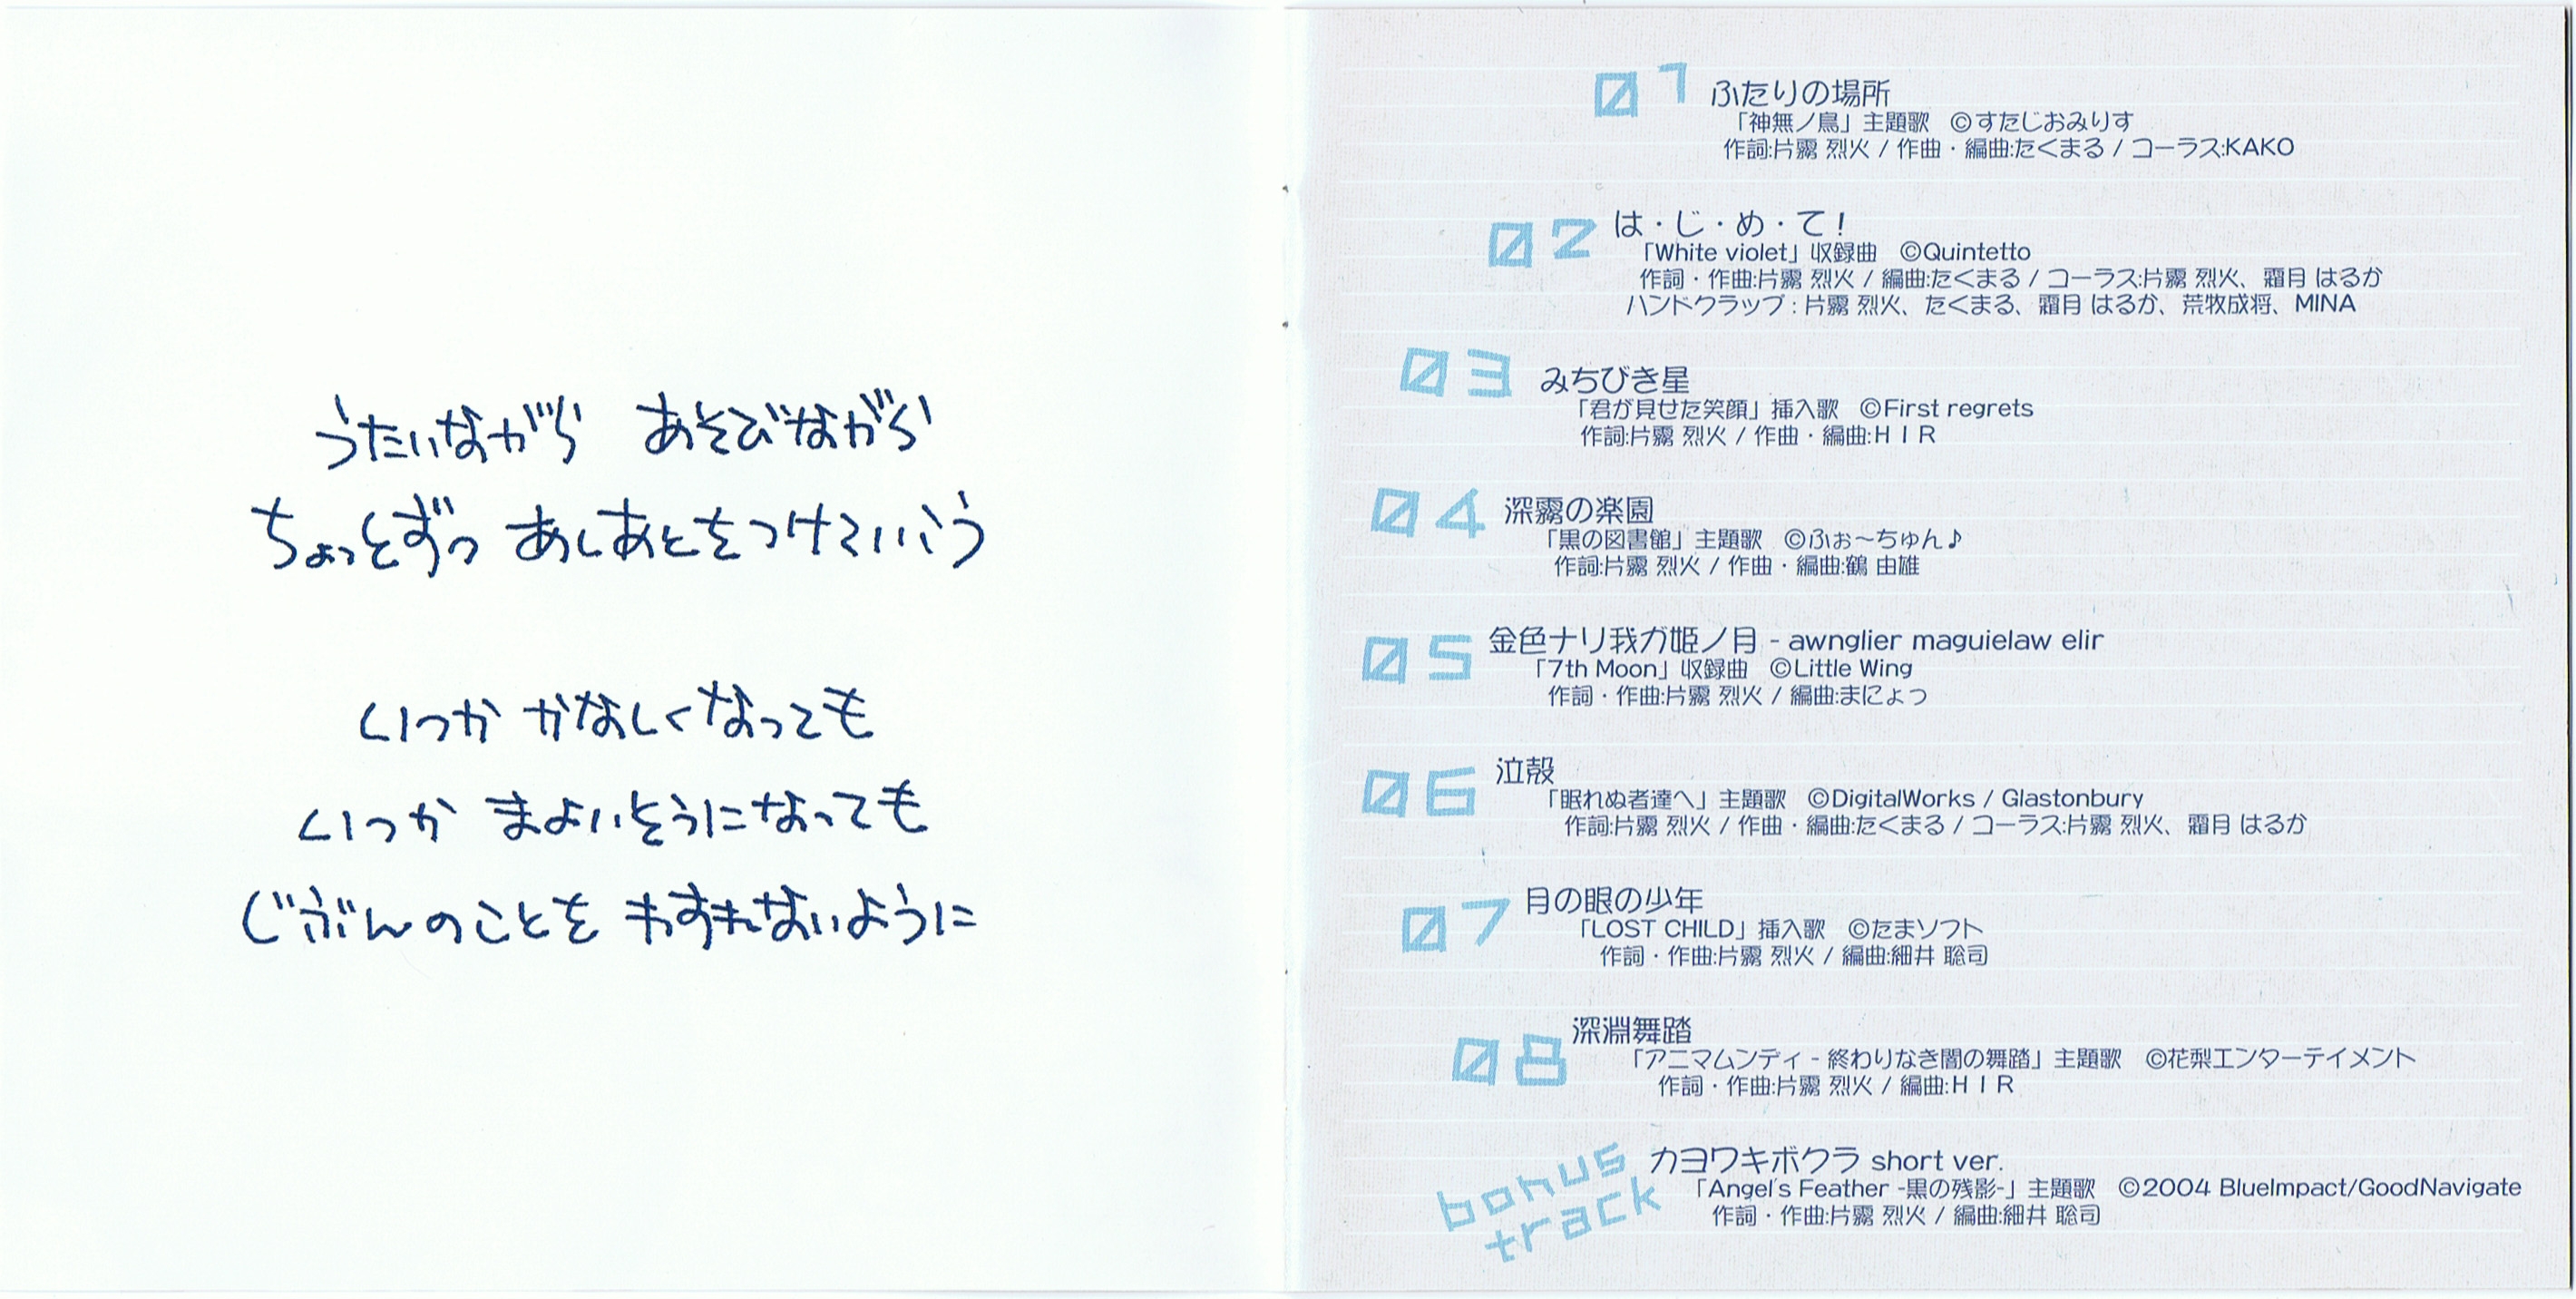 うたいながら あそびながら
ちょっとずつ あしあとをつけていこう
いつか かなしくなっても
いつか まよいそうになっても
じぶんのことを わすれないように
01 ふたりの場所
「神無ノ鳥」主題歌 ©すたじおみりす
作詞:片霧 烈火 / 作曲・編曲:たくまる / コーラス:KAKO
02 は・じ・め・て!
「White violet」収録曲 ©Quintetto
作詞・作曲:片霧 烈火 / 編曲:たくまる / コーラス:片霧 烈火、霜月 はるか
ハンドクラップ:片霧 烈火、たくまる、霜月 はるか、荒牧成将、MINA
03 みちびき星
「君が見せた笑顔」挿入歌 ©First regrets
作詞:片霧 烈火 / 作曲・編曲:HIR
04 深霧の楽園
「黒の図書館」主題歌 ©ふぉ〜ちゅん♪
作詞:片霧 烈火 / 作曲・編曲:鶴 由雄
05 金色ナリ我ガ姫ノ月 - awnglier maguielaw elir
「7th Moon」収録曲 ©Little Wing
作詞・作曲:片霧 烈火 / 編曲:まにょっ
06 泣殻
「眠れぬ者達へ」主題歌 ©DigitalWorks / Glastonbury
作詞:片霧 烈火 / 作曲・編曲:たくまる / コーラス:片霧 烈火、霜月 はるか
07 月の眼の少年
「LOST CHILD」挿入歌 ©たまソフト
作詞・作曲:片霧 烈火 / 編曲:細井 聡司
08 深淵舞踏
「アニマムンディ - 終わりなき闇の舞踏」主題歌 ©花梨エンターテイメント
作詞・作曲:片霧 烈火 / 編曲:HIR
bonus track カヨワキボクラ short ver.
「Angel's Feather -黒の残影-」主題歌 ©2004 BlueImpact/GoodNavigate
作詞・作曲:片霧 烈火 / 編曲:細井 聡司